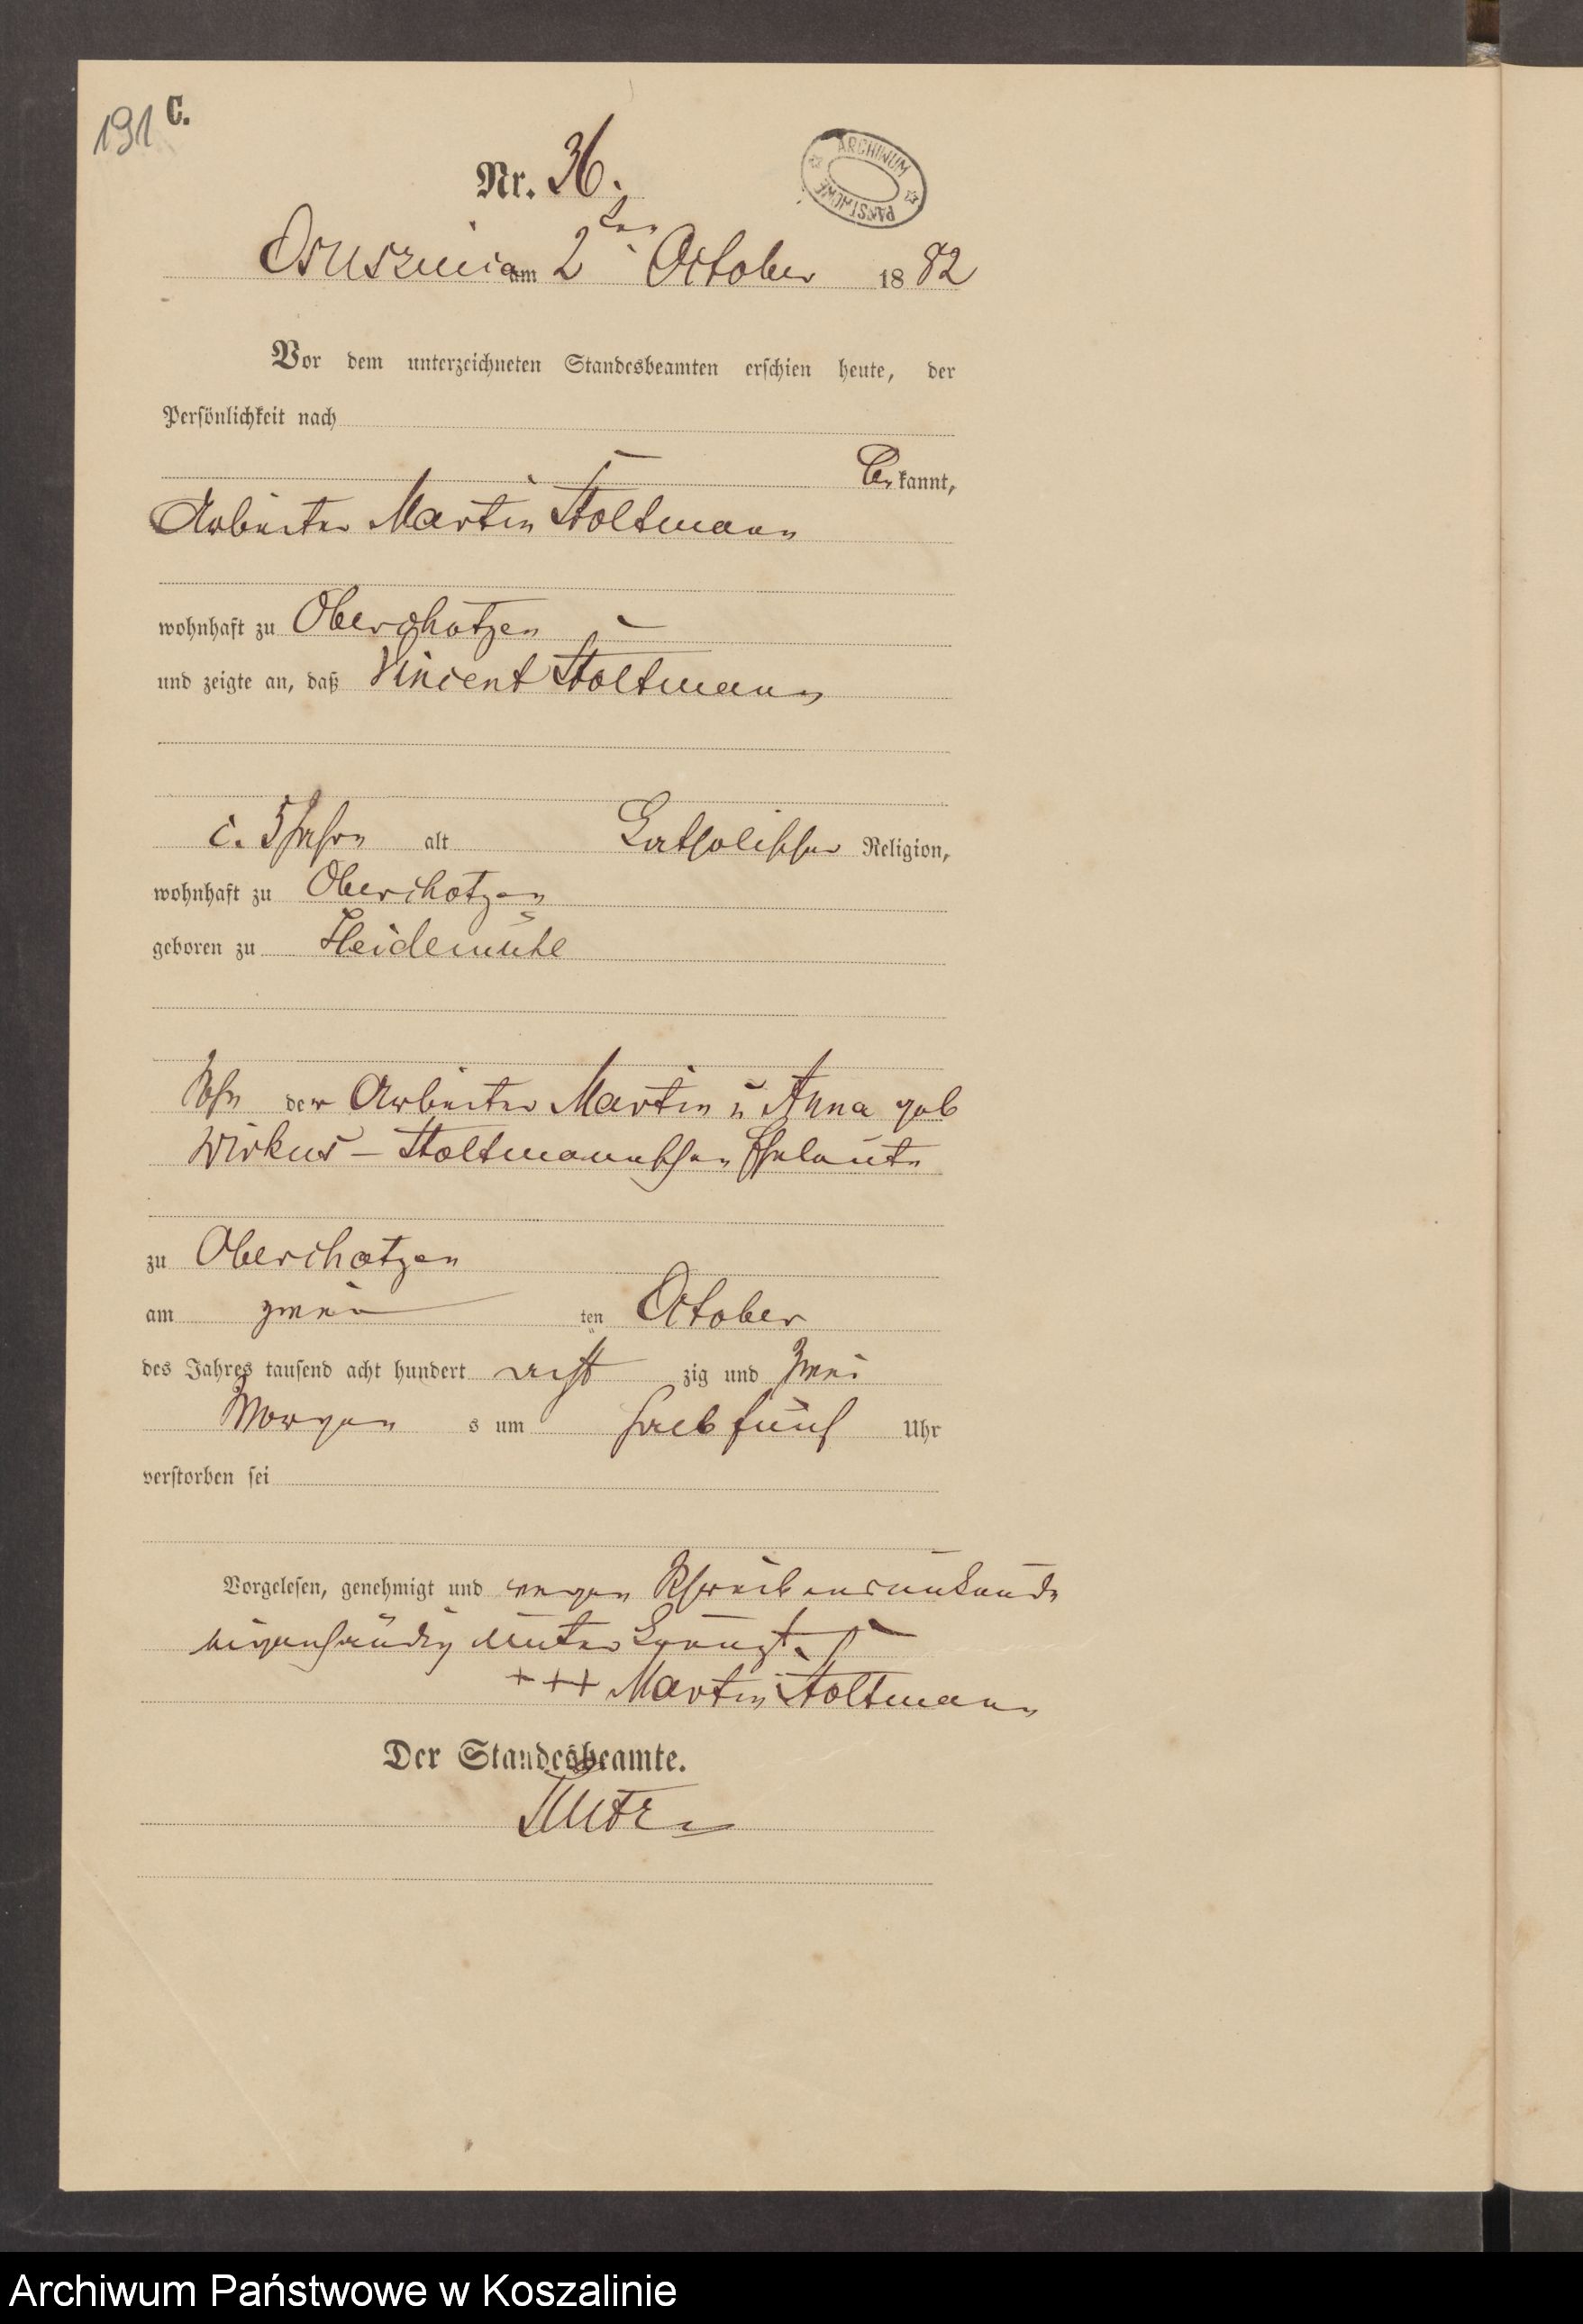 191 C.
Nr. 36.
ARCHIWUM PAŃSTWOWE
Osusznica am 2ten October 1882
Vor dem unterzeichneten Standesbeamten erschien heute, der
Persönlichkeit nach
bekannt,
Arbeiter Martin Stoltmann
wohnhaft zu Oberchotzen
und zeigte an, daß Vincent Stoltmann
c. 5 Jahr alt Katholischer Religion,
wohnhaft zu Oberchotzen
geboren zu Heidemühl
Sohn der Arbeiter Martin u Anna geb
Wirkus – Stoltmannschen Eheleute
zu Oberchotzen
am zwei ten October
des Jahres tausend acht hundert acht zig und zwei
Morgen s um halb fünf Uhr
verstorben sei
Vorgelesen, genehmigt und wegen Schreibensunkunde
eigenhändig unterkreuzt.
+++ Martin Stoltmann
Der Standesbeamte.
Archiwum Państwowe w Koszalinie